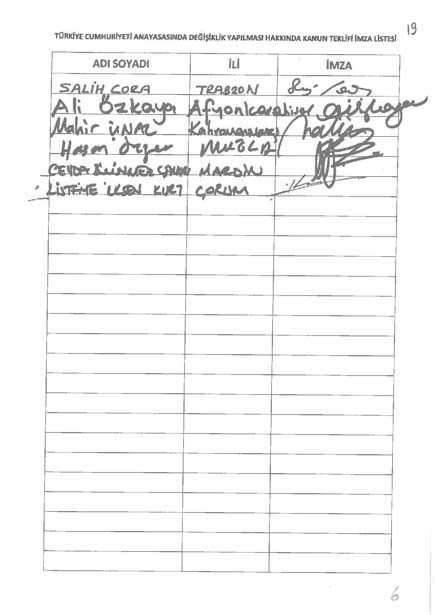 19
TÜRKİYE CUMHURİYETİ ANAYASASINDA DEĞİŞİKLİK YAPILMASI HAKKINDA KANUN TEKLİFİ İMZA LİSTESİ
ADI SOYADI İLİ İMZA
SALİH CORA TRABZON
Ali Özkaya Afyonkarahisar
Mahir ÜNAL Kahramanmaraş
Hasan Özyer MUĞLA
CEYDA MARDİN
LİSTEME KURT ÇORUM
6